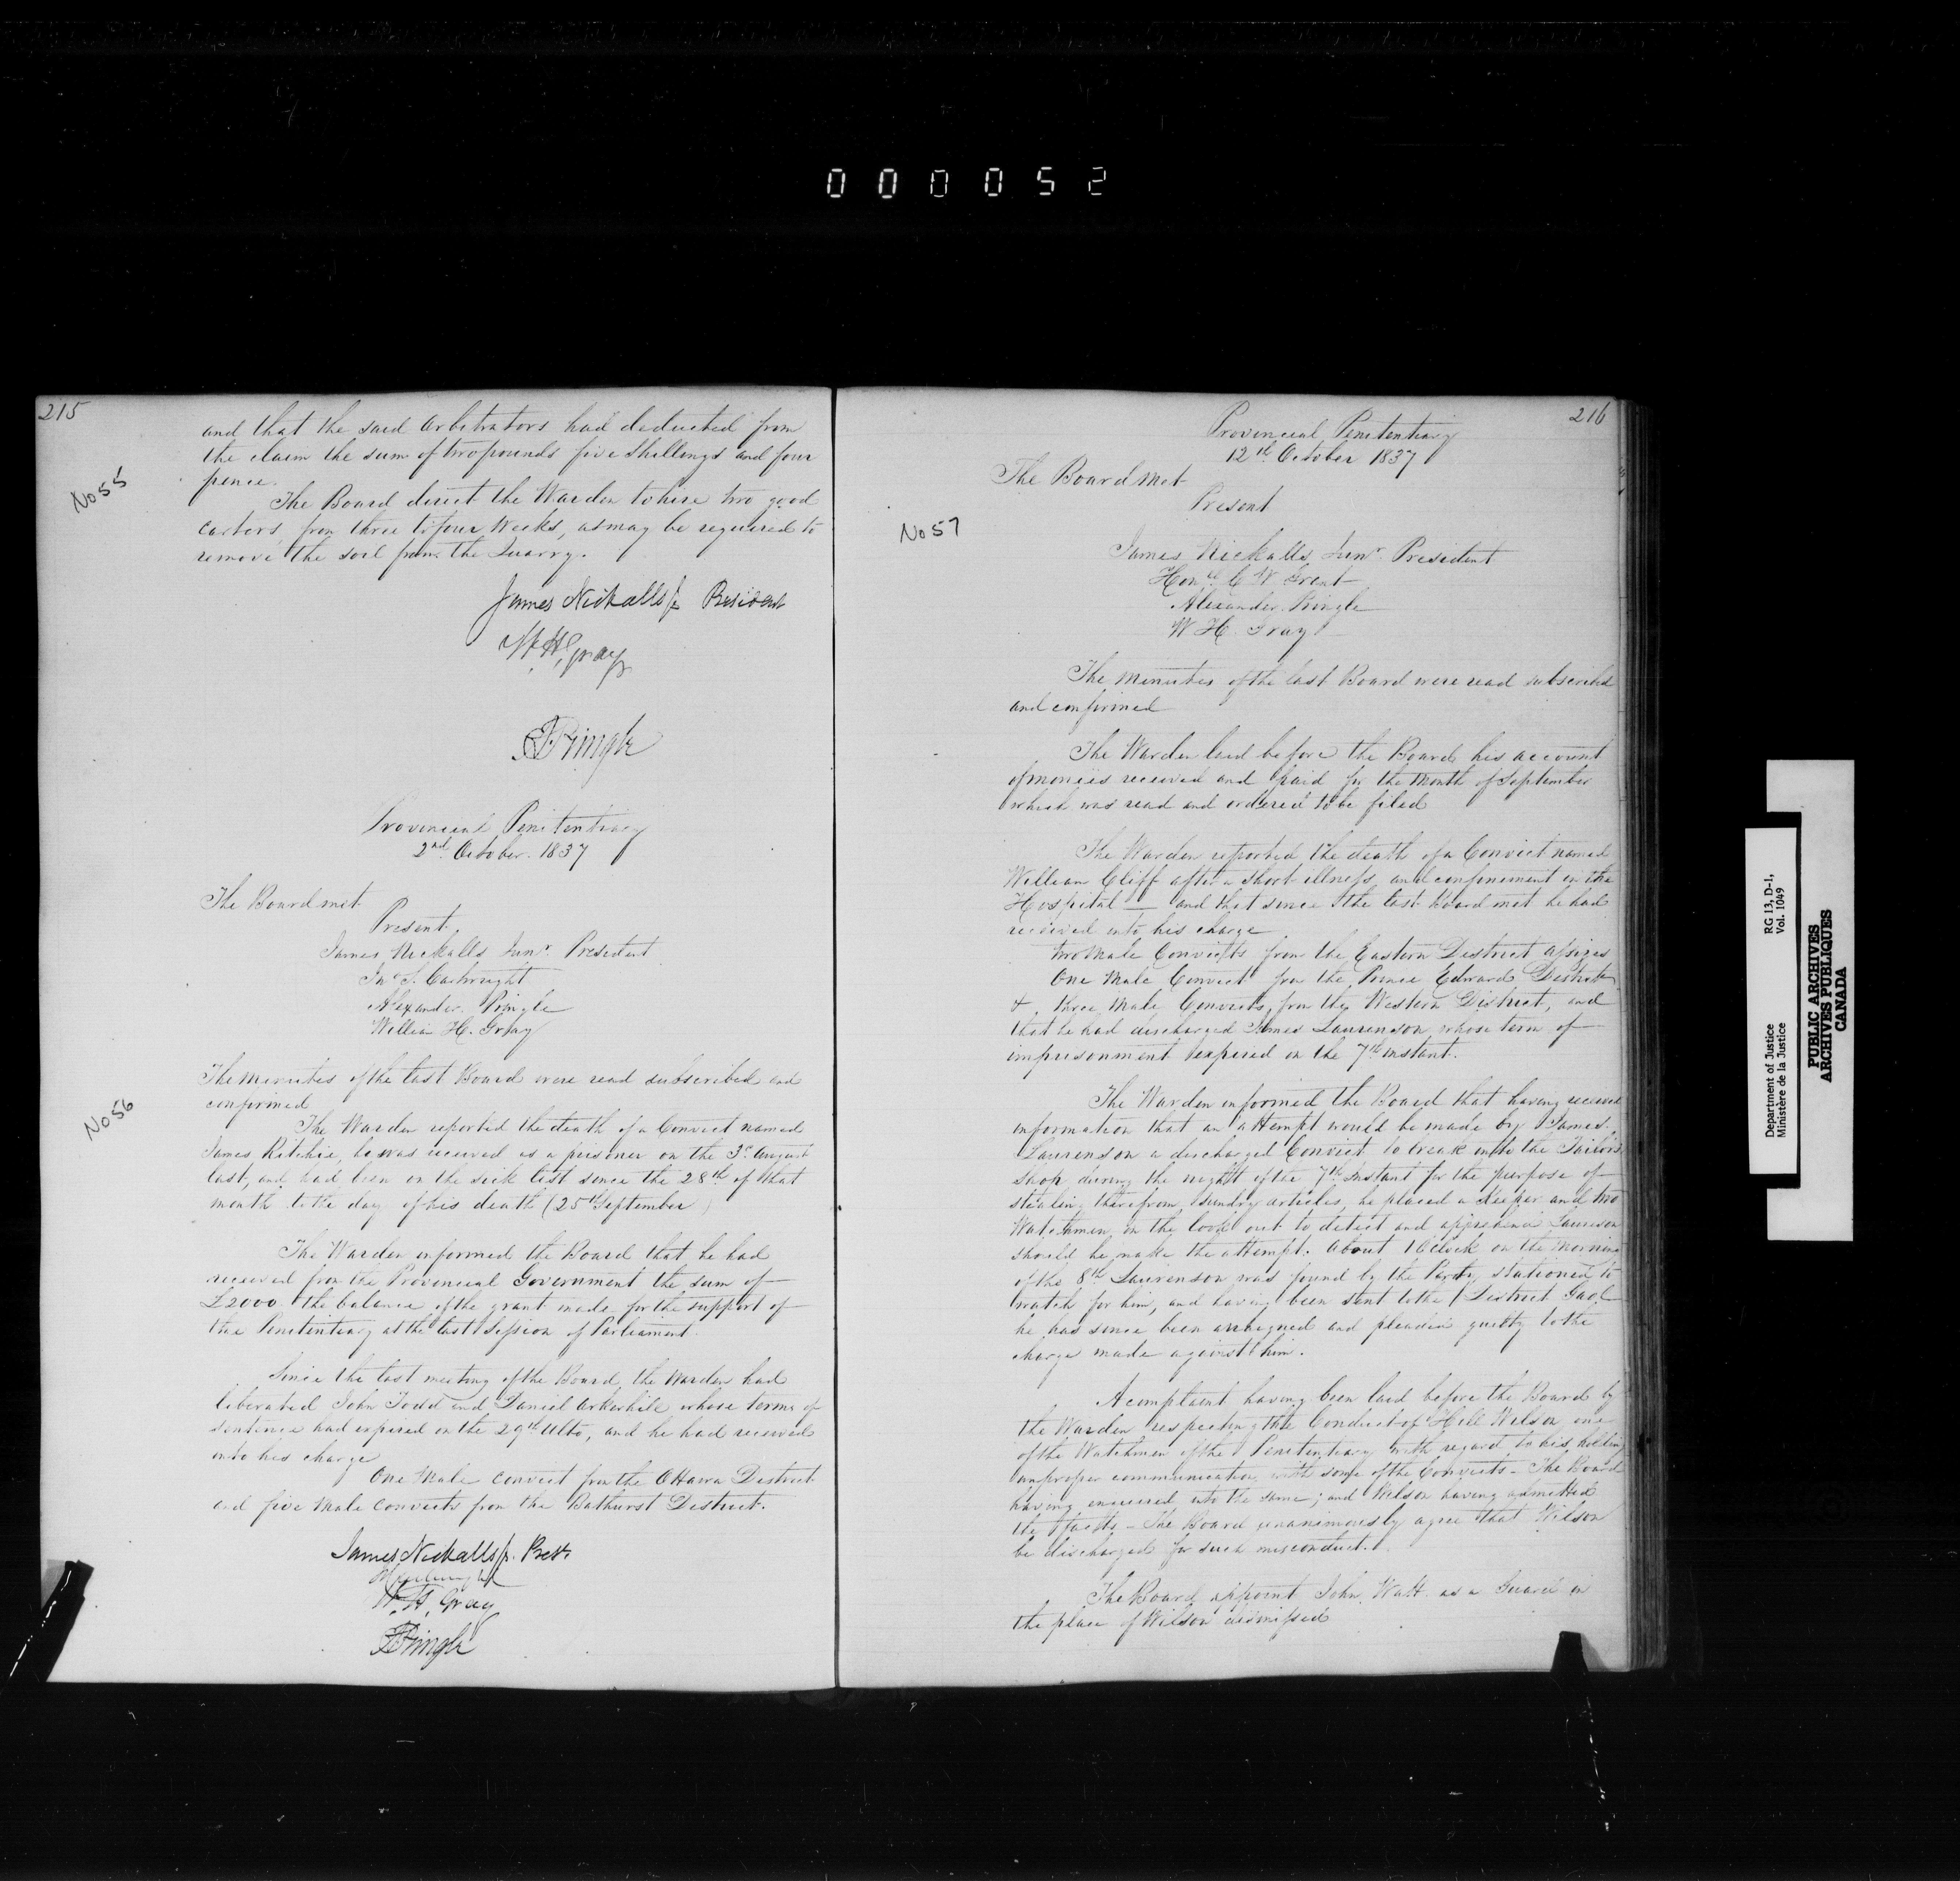 000052
215
and that the said Arbitrators had deducted from
the claim the sum of two pounds five Shillings and four
pence.
No 55
The Board direct the Warden to hire two good
carters, from three to four Weeks, as may be required to
remove the soil from the Quarry.
James Nickalls Jr President
W. H. Gray
A Pringle
Provincial Penitentiary
2nd October. 1837
The Board met
Present
James Nickalls Junr. President
Jno. S. Cartwright
Alexander Pringle
William H. Gray
The minutes of the last Board were read subscribed and
confirmed
No 56
The Warden reported the death of a Convict named
James Ritchie, he was received as a prisoner on the 3d. August
last, and had been on the sick list since the 28th of that
month to the day of his death (25th September)
The Warden informed the Board that he had
received from the Provincial Government the sum of
£2000. the balance of the grant made for the support of
the Penitentiary at the last Session of Parliament.
Since the last meeting of the Board the Warden had
liberated John Todd and Daniel Arkerhill whose terms of
sentence had expired on the 29th Ulto, and he had received
into his charge
One Male convict from the Ottawa District
and five Male convicts from the Bathurst District.
James Nickalls Jr. Prest.
W. H. Gray
A Pringle
216
Provincial Penitentiary
12th October 1837
The Board met
Present
No 57
James Nickalls Junr. President
Honble C W Grant
Alexander Pringle
W H. Gray
The minutes of the last Board were read subscribed
and confirmed
The Warden laid before the Board his account
of monies received and paid for the Month of September
which was read and ordered to be filed
The Warden reported the death of a Convict named
William Cliff after a short illness and confinement in the
Hospital — and that since the last Board met he had
received into his charge
two Male Convicts from the Eastern District Assizes
One Male Convict from the Prince Edward District
& three Male Convicts from the Western District, and
that he had discharged James Laurenson whose term of
imprisonment expired on the 7th instant.
The Warden informed the Board that having received
information that an attempt would be made by James
Laurenson a discharged Convict to break into the Tailors
Shop during the night of the 7th Instant for the purpose of
stealing therefrom sundry articles, he placed a Keeper and two
Watchmen on the look out to detect and apprehend Laurenson
should he make the attempt. About 1 OClock on the morning
of the 8th Laurenson was found by the Party stationed to
watch for him, and having been sent to the District Gaol
he has since been arraigned and pleaded guilty to the
charge made against him.
A complaint having been laid before the Board by
the Warden respecting the Conduct of Hill Wilson one
of the Watchmen of the Penitentiary with regard to his holding
improper communication with some of the Convicts – The Board
having enquired into the same; and Wilson having admitted
the facts – The Board unanimously agree that Wilson
be discharged for such misconduct.
The Board appoint John Watt as a Guard in
the place of Wilson dismissed
Department of Justice RG 13, D-1,
Ministère de la Justice Vol. 1049
PUBLIC ARCHIVES
ARCHIVES PUBLIQUES
CANADA